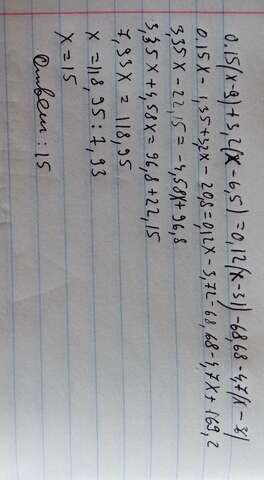 0.15(x-9)+3,2(x-6,5)=0,12(x-31)-68,68-4,7(x-36)
0.15x-1,35+3,2x-20,8=0,12x-3,72-68,68-4,7x+169,2
3,35x-22,15=-4,58x+96,8
3,35x+4,58x=96,8+22,15
7,93x = 118,95
x=118,95:7,93
x=15
Ответ: 15